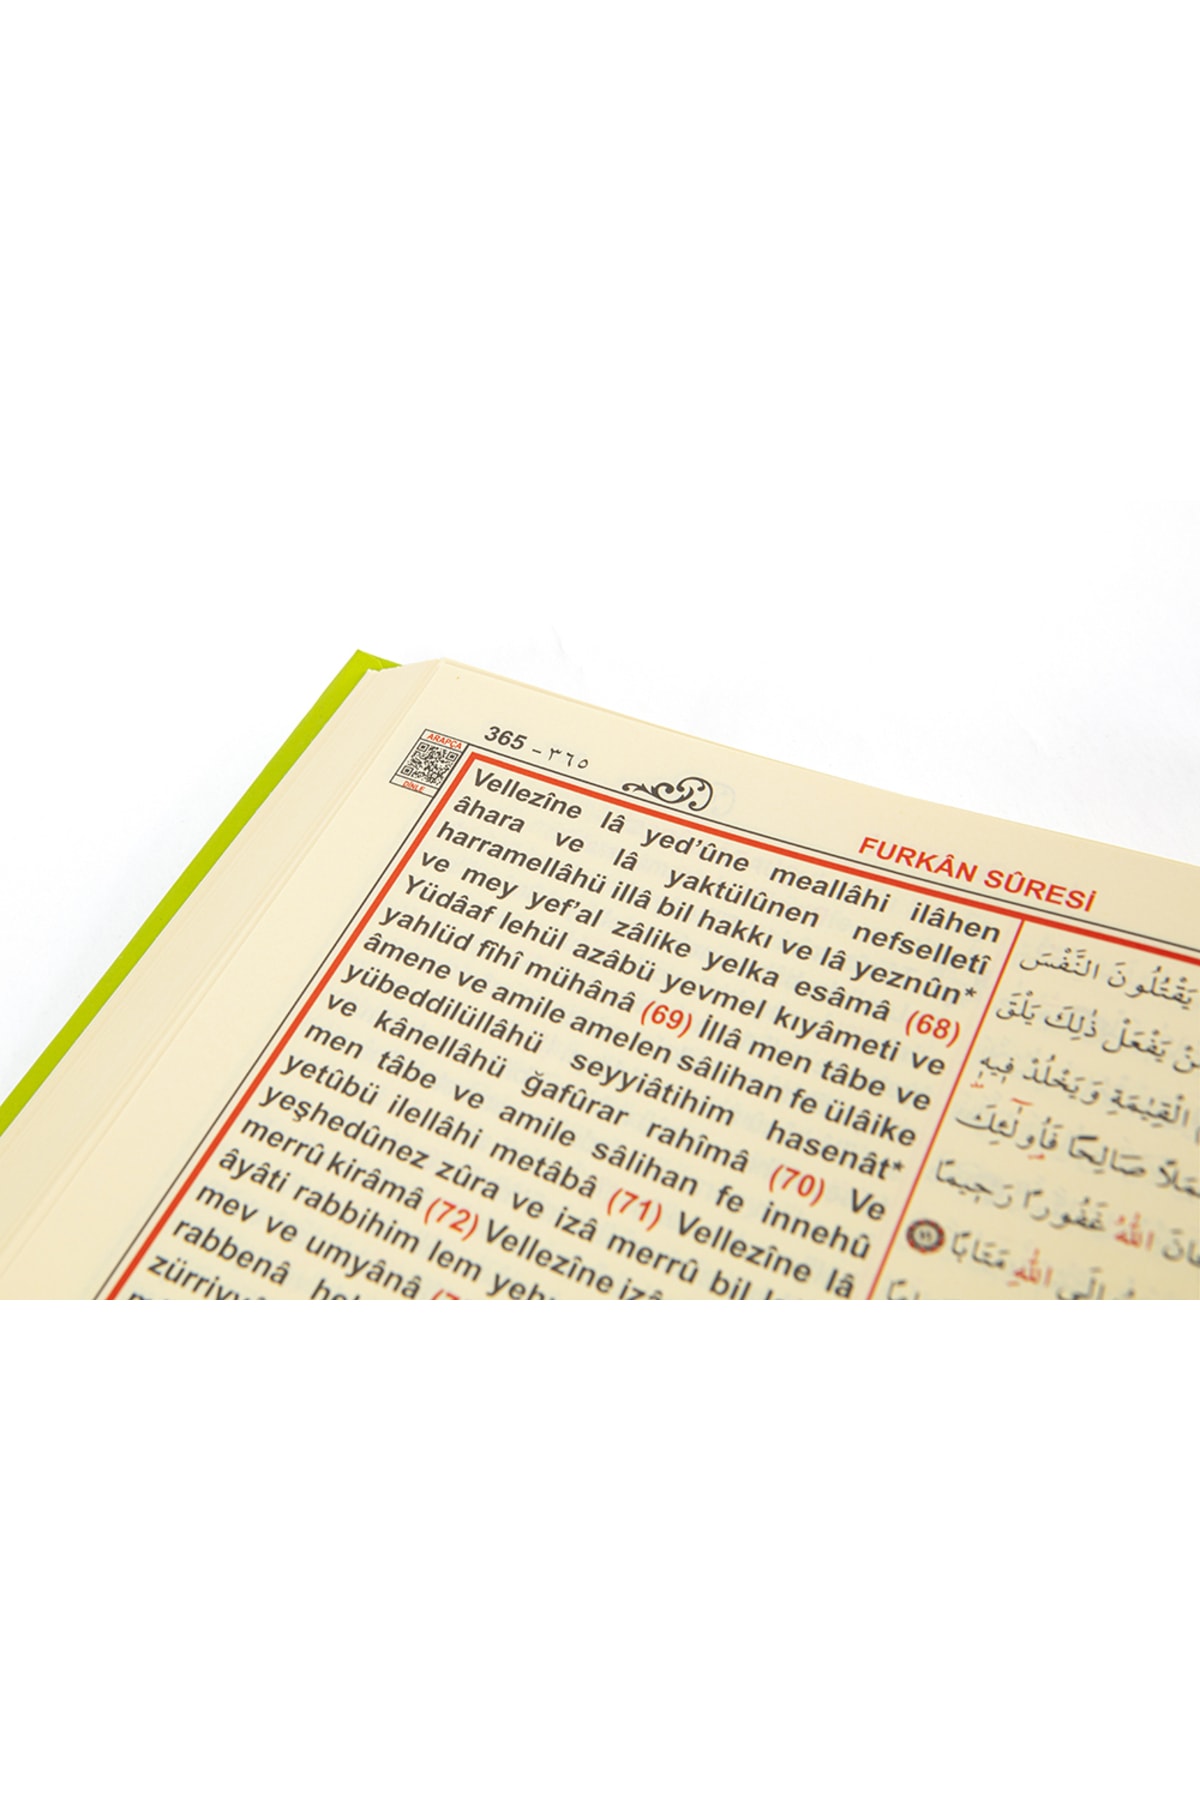 ARAPÇA
DİNLE
365 - ٣٦٥
FURKÂN SÛRESİ
Vellezîne lâ yed’ûne meallâhi ilâhen
âhara ve lâ yaktülûnen nefselletî
harramellâhü illâ bil hakkı ve lâ yeznûn*
ve mey yef’al zâlike yelka esâmâ (68)
Yüdâaf lehül azâbü yevmel kıyâmeti ve
yahlüd fîhî mühânâ (69) İllâ men tâbe ve
âmene ve amile amelen sâlihan fe ülâike
yübeddilüllâhü seyyiâtihim hasenât*
ve kânellâhü ğafûrar rahîmâ (70) Ve
men tâbe ve amile sâlihan fe innehû
yetûbü ilellâhi metâbâ (71) Vellezîne lâ
yeşhedûnez zûra ve izâ merrû bil
merrû kirâmâ (72) Vellezîne izâ
âyâti rabbihim lem
mev ve umyânâ
rabbenâ
يَقْتُلُونَ النَّفْسَ
يَفْعَلْ ذٰلِكَ يَلْقَ
الْقِيٰمَةِ وَيَخْلُدْ فِيهٖ
صَالِحًا فَاُولٰٓئِكَ
اللّٰهُ غَفُورًا رَحِيمًا
اِلَى اللّٰهِ مَتَابًا ٧١